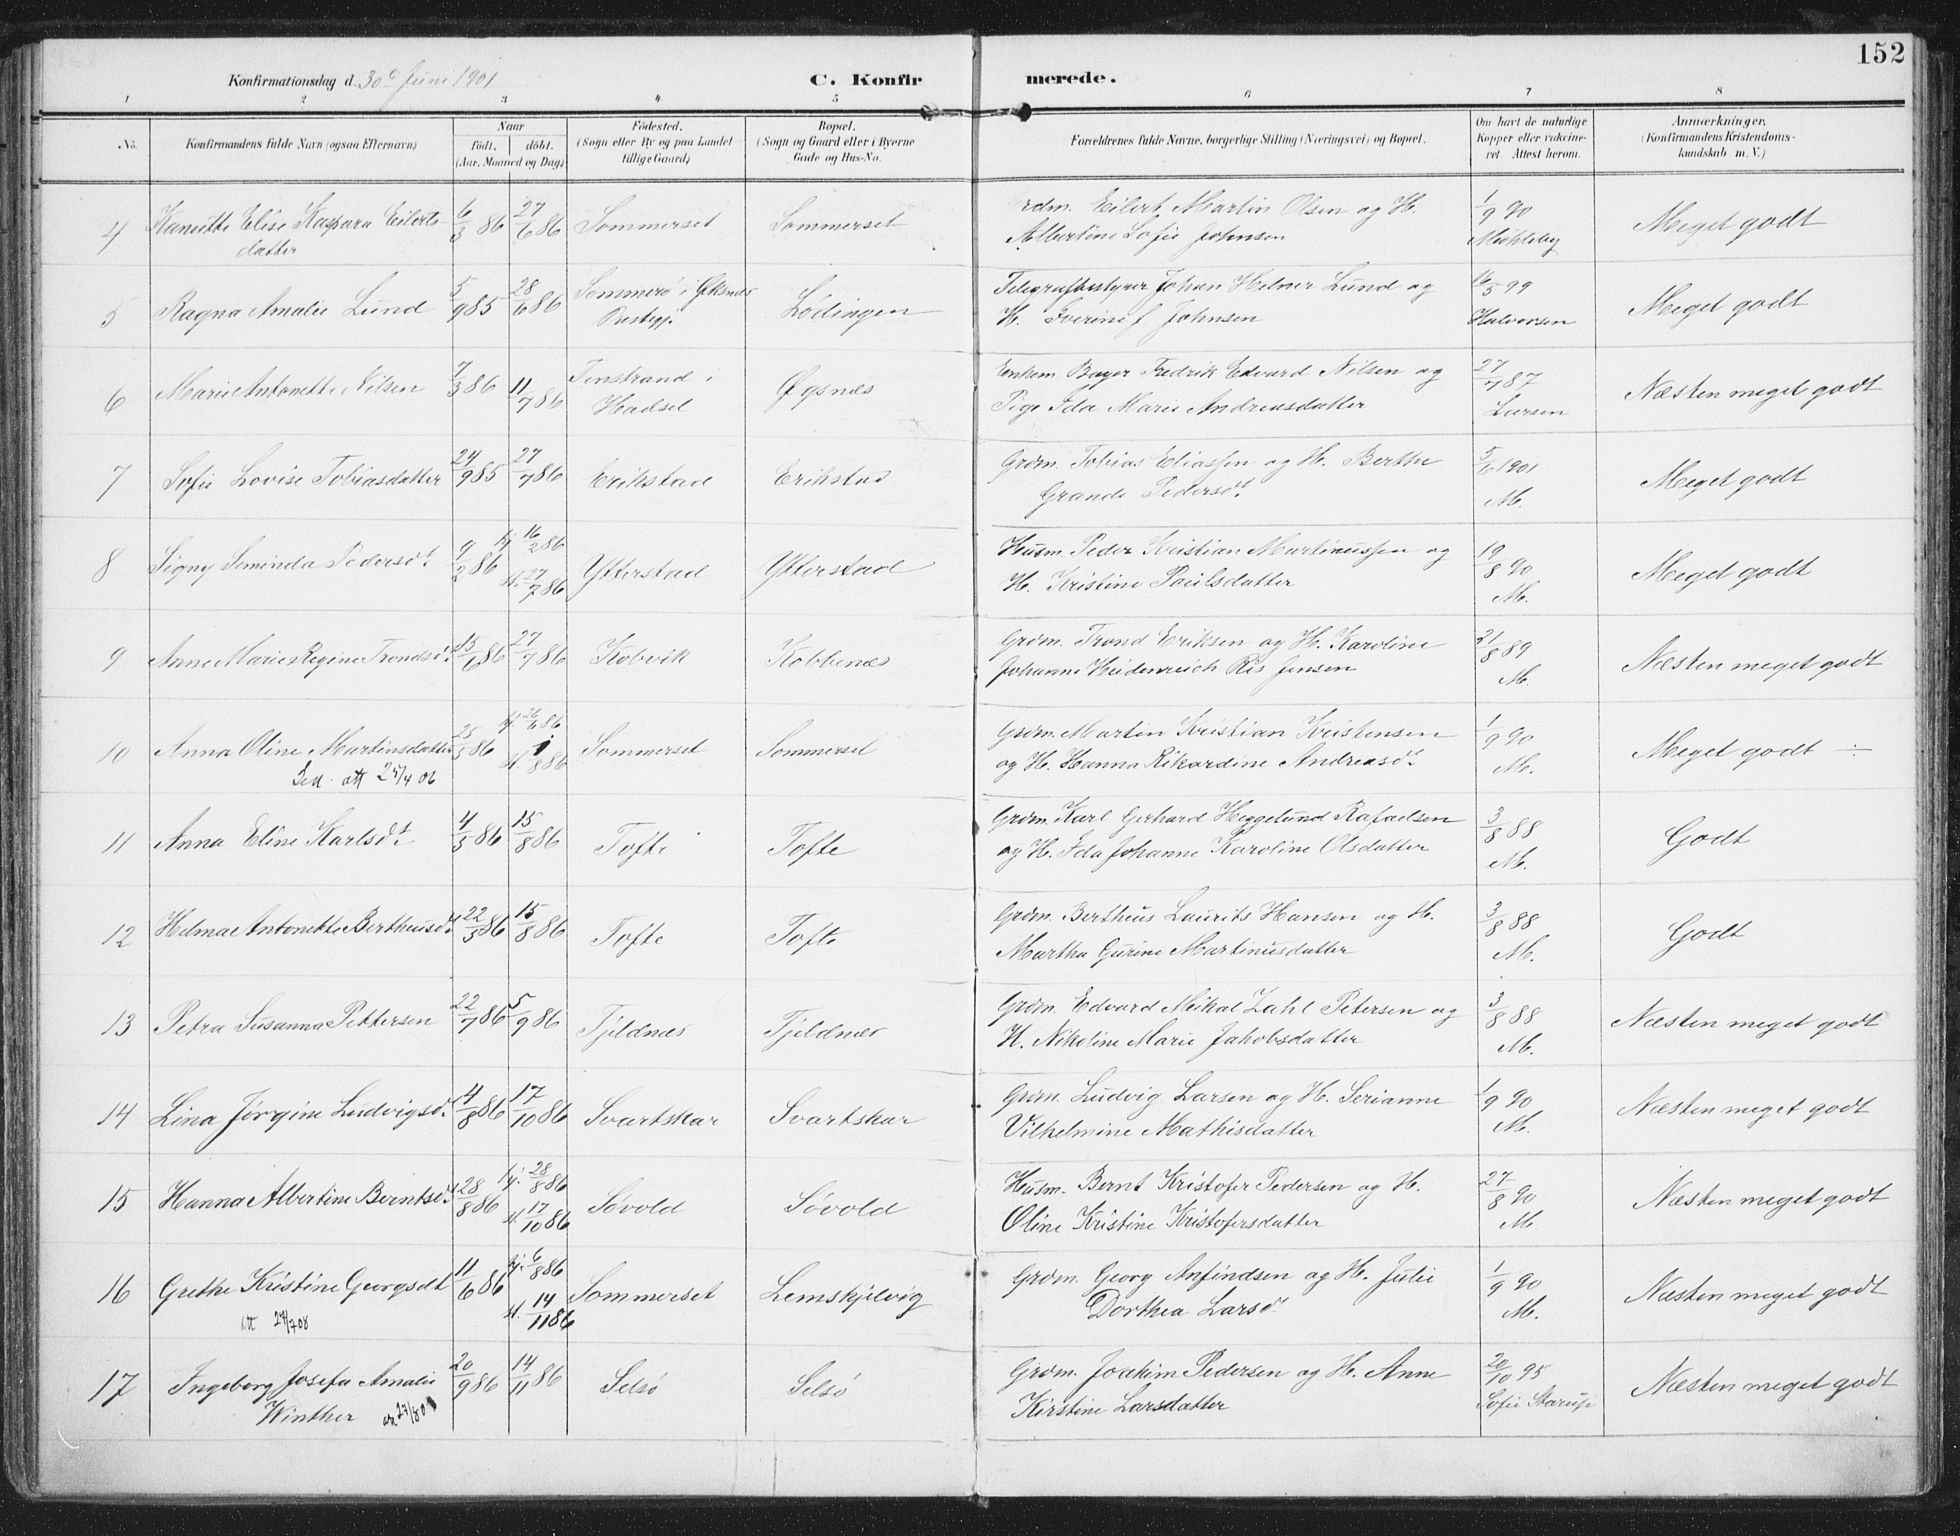 152
Konfirmationsdag d. 30e Juni 1901
C. Konfirmerede.
1 2 3 4 5 6 7 8
No. Konfirmandens fulde Navn (ogsaa Efternavn) Naar født. døbt. (Aar, Maaned og Dag) Fødested. (Sogn eller By og paa Landet tillige Gaard) Bopæl. (Sogn og Gaard eller i Byerne Gade og Hus-No. Forældrenes fulde Navne, borgerlige Stilling (Næringsvei) og Bopæl. Om havt de naturlige Kopper eller vakcineret. Attest herom. Anmærkninger. (Konfirmandens Kristendomskundskab m. V.)
4 Elise Kaspara Eilerts- 6/3 86 27/6 86 Sommerset Sommerset Eilert Martin Olsen og H. 1/9 90 Meget godt
datter Albertine Sofie Johnsen
5 Ragna Amalie Lund 5/9 85 28/6 86 Sommerø i Øksnes Lødingen Telegrafbestyrer Johan Hilmer Lund og 16/5 99 Meget godt
Prestegj. H. Johnsen Halvorsen
6 Marie Antonette Nilsen 7/3 86 11/7 86 i Øgsnæs Enkem. Fredrik Edvard Nilsen og 27/7 87 Næsten meget godt
Hadsel Pige Ida Marie Andreasdatter Larsen
7 Sofie Lovise Tobiasdatter 24/9 85 27/7 86 Erikstad Erikstad Grdm. Tobias Eliassen og H. Berthe 5/6 1901 Meget godt
Grande Pedersdt. M.
8 Signy Seminda Pedersdt. 9/2 86 hj. 16/2 86 Ytterstad Ytterstad Husm. Peder Kristian Martinussen og 19/8 90 Meget godt
st. 27/7 86 H. Kristine Poulsdatter M.
9 Anne Marie Regine Trondsdt. 15/6 86 27/7 86 Kobvik Kobbenæs Grdm. Trond Eriksen og H. Karoline 21/8 89 Næsten meget godt
Johanne Heidenreich Ris Jensen M.
10 Anna Oline Martinsdatter 25/5 86 hj. 26/6 86 Sommerset Sommerset Grdm. Martin Kristian Kristensen 1/9 90 Meget godt ÷
att 25/4 06 st. 1/8 86 og H. Hanna Rikardine Andreasdt. M.
11 Anna Eline Karlsdt. 4/5 86 15/8 86 Tofte Tofte Grdm. Karl Gerhard Heggelund Rafaelsen 3/8 88 Godt
og H. Ida Johanne Karoline Olsdatter M.
12 Helma Antonette Bertheusdt. 22/5 86 15/8 86 Tofte Tofte Grdm. Bertheus Laurits Hansen og H. 3/8 88 Godt
Martha Gurine Martinusdatter M.
13 Petra Susanna Pettersen 22/7 86 5/9 86 Tjeldnæs Tjeldnæs Grdm. Edvard Mikal Zahl Petersen og 3/8 88 Næsten meget godt
H. Nikoline Marie Jakobsdatter M.
14 Lina Jørgine Ludvigsdt. 4/8 86 17/10 86 Svartskar Svartskar Grdm. Ludvig Larsen og H. Serianne 1/9 90 Næsten meget godt
Vilhelmine Mathisdatter M.
15 Hanna Albertine Berntsdt. 28/8 86 hj. 28/8 86 Søvold Søvold Husm. Bernt Kristofer Pedersen og H. 27/8 90 Næsten meget godt
st. 17/10 86 Oline Kristine Kristofersdatter M.
16 Grethe Kristine Georgsdt 11/6 86 hj. 6/8 86 Sommerset Lemskjelvig Grdm. Georg Anfindsen og H. Julie 1/9 90 Næsten meget godt
att 27/7 08 st. 14/11 86 Dorthea Larsdt. M.
17 Ingeborg Josefa Amalie 20/9 86 14/11 86 Selsø Selsø Grdm. Joakim Pedersen og H. Anne 20/10 95 Næsten meget godt
Winther Kirstine Larsdatter Sofie Starup